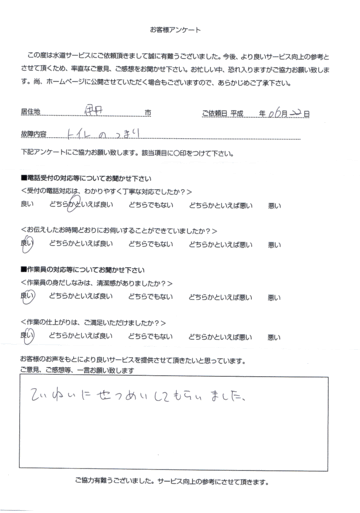 お客様アンケート
この度は水道サービスにご依頼頂きまして誠に有難うございました。今後、より良いサービス向上の参考と
させて頂くため、率直なご意見、ご感想をお聞かせ下さい。お忙しい中、恐れ入りますがご協力お願い致しま
す。尚、ホームページに公開させていただく場合もございますので、あらかじめご了承下さい。
居住地 伊丹 市 ご依頼日 平成 年 06月 22日
故障内容 トイレのつまり
下記アンケートにご協力お願い致します。該当項目に〇印をつけて下さい。
■電話受付の対応等についてお聞かせ下さい
<受付の電話対応は、わかりやすく丁寧な対応でしたか?>
良い どちらかといえば良い どちらでもない どちらかといえば悪い 悪い
<お伝えしたお時間どおりにお伺いすることができていましたか?>
良い どちらかといえば良い どちらでもない どちらかといえば悪い 悪い
■作業員の対応等についてお聞かせ下さい
<作業員の身だしなみは、清潔感がありましたか?>
良い どちらかといえば良い どちらでもない どちらかといえば悪い 悪い
<作業の仕上がりは、ご満足いただけましたか?>
良い どちらかといえば良い どちらでもない どちらかといえば悪い 悪い
お客様のお声をもとにより良いサービスを提供させて頂きたいと思っています。
ご意見、ご感想等、一言お願い致します
ていねいにせつめいしてもらいました、
ご協力有難うございました。サービス向上の参考にさせて頂きます。